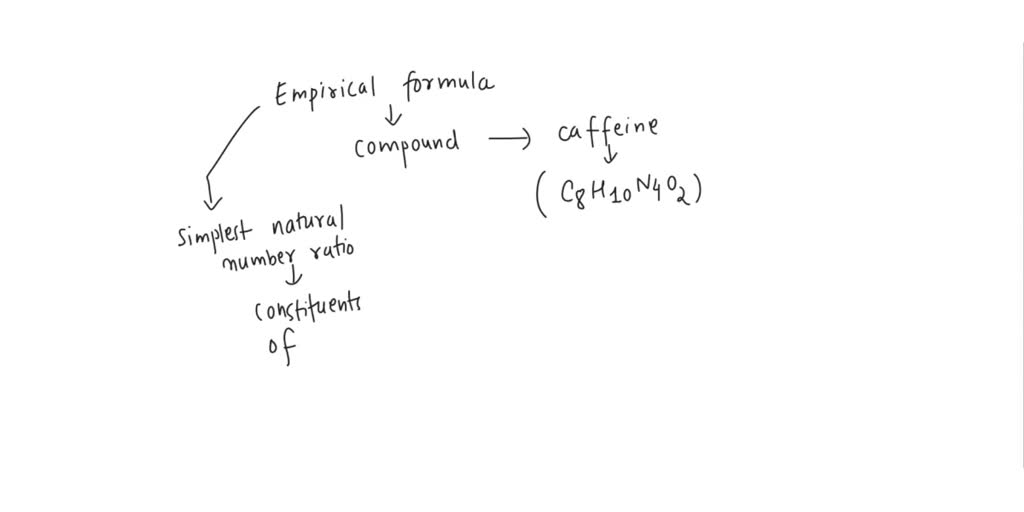 Empirical formula
compound → caffeine
(C8H10N4O2)
simplest natural
number ratio
constituents
of